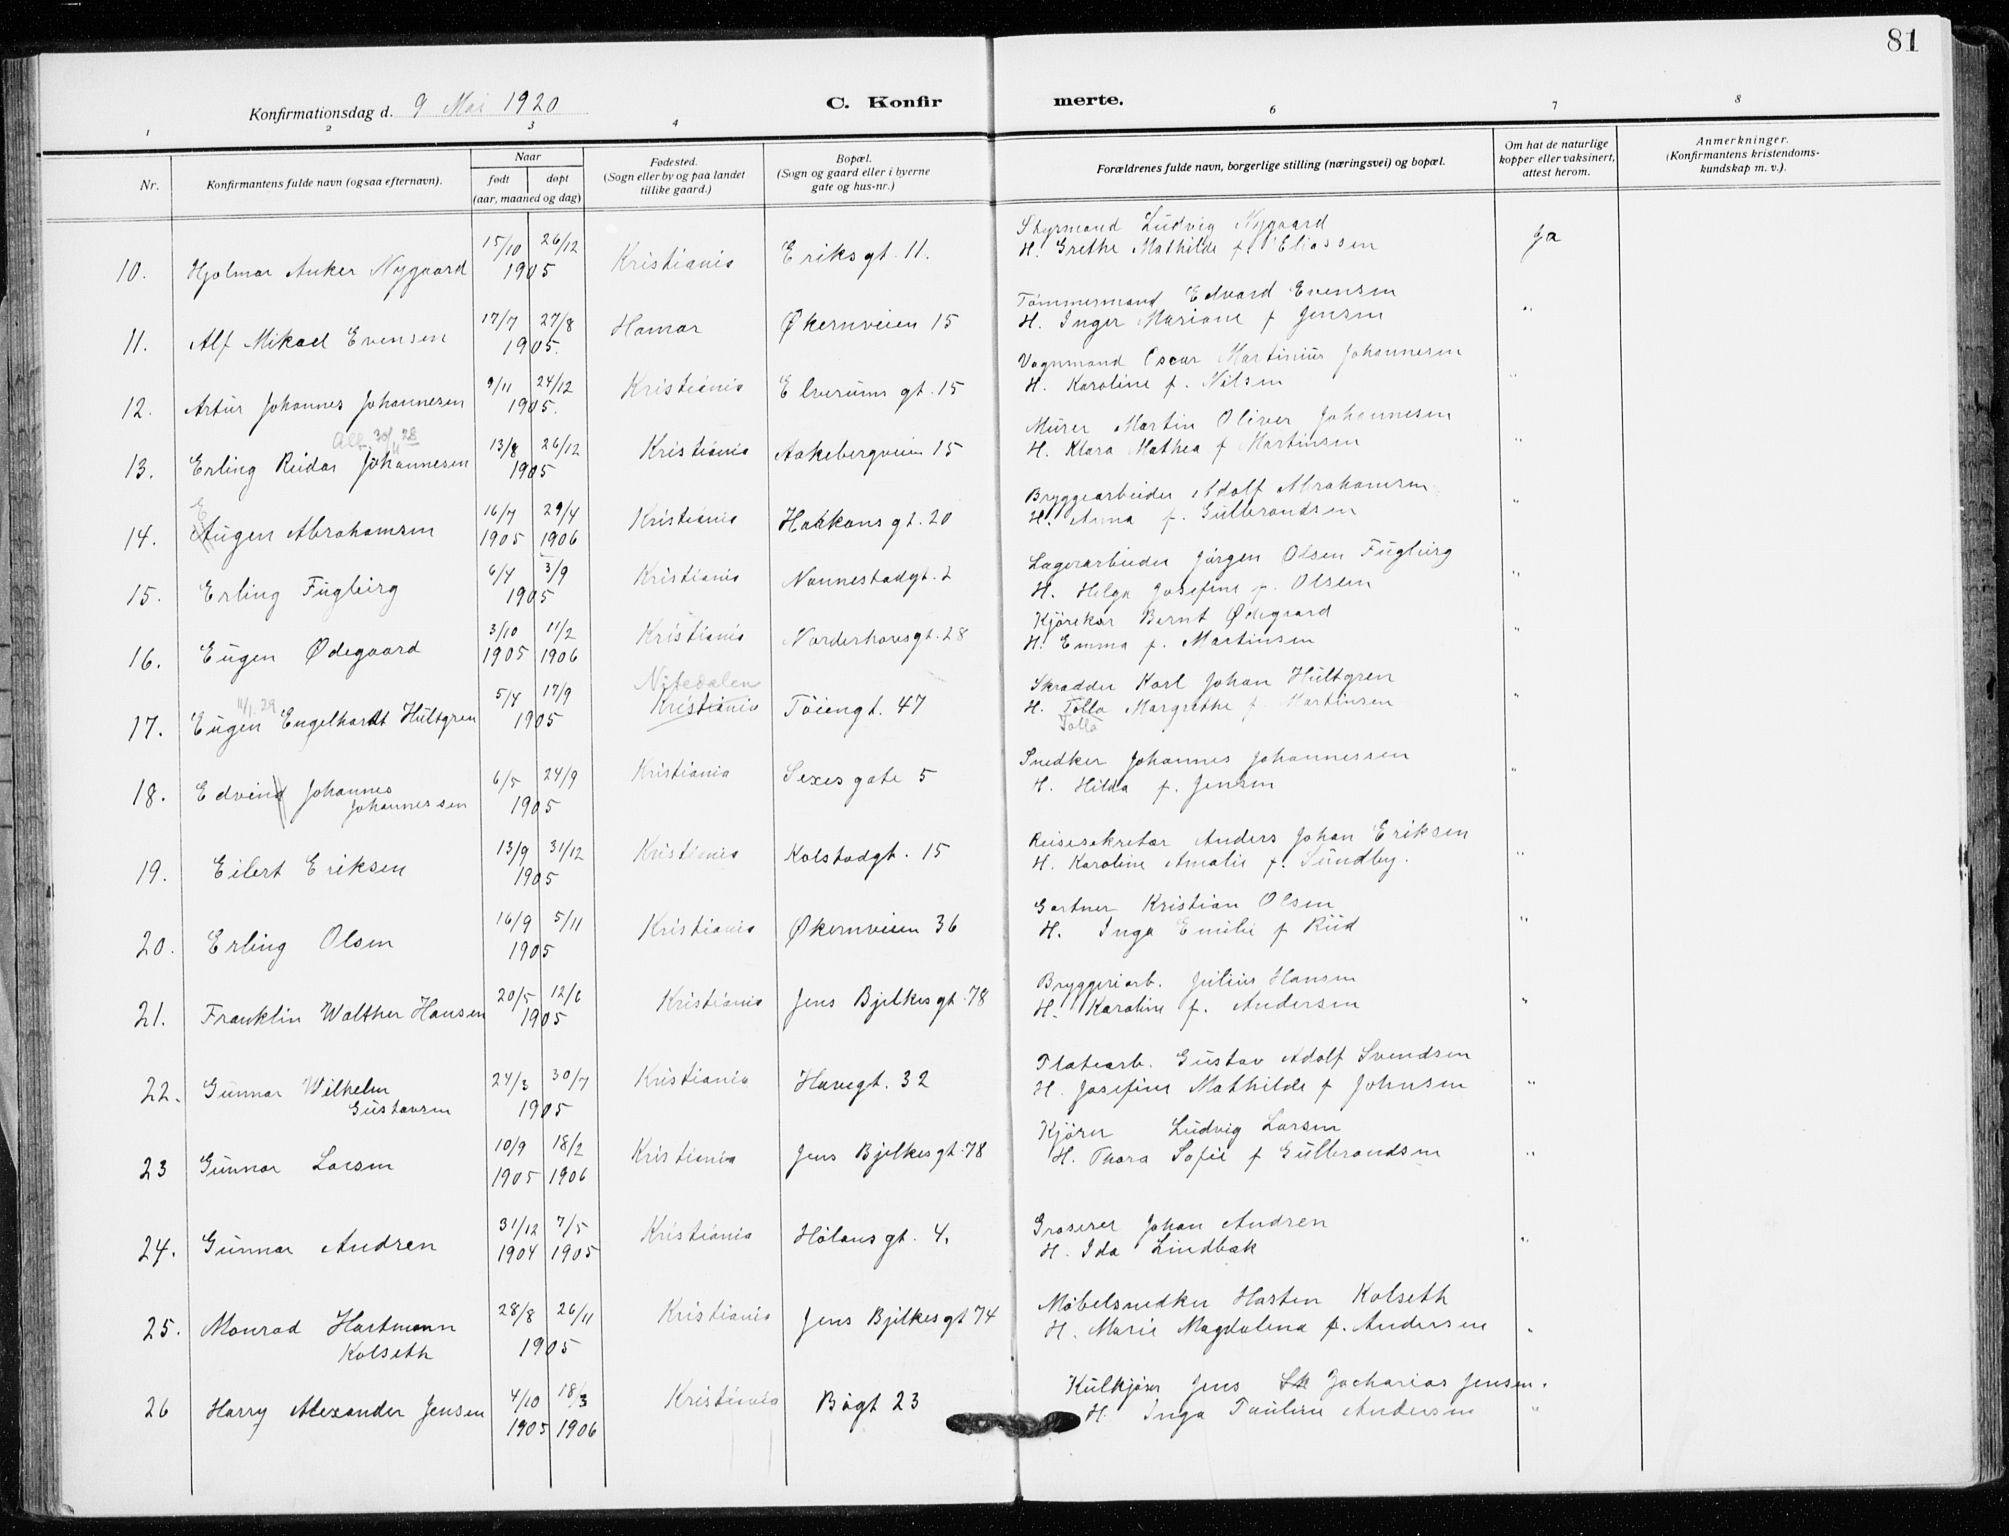 81
Konfirmationsdag d. 9 Mai 1920 C. Konfirmerte.
1 2 3 4 6 7 8
Nr. Konfirmantens fulde navn (ogsaa efternavn). Naar født døpt (aar, maaned og dag) Fødested. (Sogn eller by og paa landet tillike gaard.) Bopæl. (Sogn og gaard eller i byerne gate og hus-nr.) Forældrenes fulde navn, borgerlige stilling (næringsvei) og bopæl. Om hat de naturlige kopper eller vaksinert, attest herom. Anmerkninger. (Konfirmantens kristendomskundskap m. v.).
10. Hjalmar Anker Nygaard 15/10 26/12 1905 Kristiania Eriksgt. 11. Styrmand Ludvig Nygaard Ja
H. Grethe Mathilde f. Eliassen
11. Alf Mikael Evensen 17/7 27/8 1905. Hamar Økernveien 15 Tømmermand Edvard Evensen "
H. Inger Mariane f Jensen
12. Artur Johannes Johannesen 9/11 24/12 1905. Kristiania Elverums gt. 15 Vognmand Oscar Martinius Johannesen "
H. Karoline f. Nilsen
All. 30/11 28
13. Erling Reidar Johannesen 13/8 26/12 1905 Kristiania Aakebergveien 15 Murer Martin Oliver Johannesen "
H. Klara Mathea f Martinsen
E
14. Augen Abrahamsen 16/7 1905 29/4 1906 Kristiania Haakonsgt. 20 Bryggearbeider Adolf Abrahamsen "
H. Anna f. Gulbrandsen
15. Erling Fugleirg 6/4 3/9 1905 Kristiania Nannestadgt. 2 Lagerarbeider Jørgen Olsen Fugleirg "
H. Helga Josefine f. Olsen
16. Eugen Ødegaard 3/10 1905 11/2 1906 Kristiania Norderhovsgt. 28 Kjørekar Bernt Ødegaard "
H. Emma f. Martinsen
11/1. 29 Nitedalen
17. Eugen Engelhardt Hultgren 5/4 17/9 1905 Kristiania Tøiengt. 47 Skrædder Karl Johan Hultgren "
H. Tolla Margrethe f. Martinsen
Tolla
18. Edvind Johannes Johannessen 6/5 24/9 1905 Kristiania Sexes gate 5 Snedker Johannes Johannessen "
H. Hilda f. Jensen
19. Eilert Eriksen 13/9 31/12 1905 Kristiania Kolstadgt. 15 Reisesekretær Anders Johan Eriksen "
H. Karoline Amalie f. Sundby.
20. Erling Olsen 16/9 5/11 1905 Kristiania Økernveien 36 Gartner Kristian Olsen "
H. Inga Emilie f Rud
21. Franklin Walther Hansen 20/5 12/6 1905 Kristiania Jens Bjelkesgt. 78 Bryggeriarb. Julius Hansen "
H. Karoline f. Andersen
22. Gunnar Wilhelm Gustavsen 24/3 30/7 1905 Kristiania Havegt. 32 Platearb. Gustav Adolf Svendsen "
H. Josefine Mathilde f Johnsen
23 Gunnar Larsen 10/9 1905 18/2 1906 Kristiania Jens Bjelkesgt. 78 Kjører Ludvig Larsen "
H. Thora Sofie f Gulbrandsen
24. Gunnar Andren 31/12 1904 7/5 1905 Kristiania Hølansgt. 4. Grosserer Johan Andren "
H. Ida Lindbæk
25. Monrad Hartmann Kolseth 28/8 26/11 1905 Kristiania Jens Bjelkesgt 74 Møbelsnedker Hasten Kolseth "
H. Marie Magdalena f. Andersen
26 Harry Alexander Jensen 4/10 1905 18/3 1906 Kristiania Bøgt 23 Kulkjører Jens Zacharias Jensen. "
H. Inga Pauline Andersen